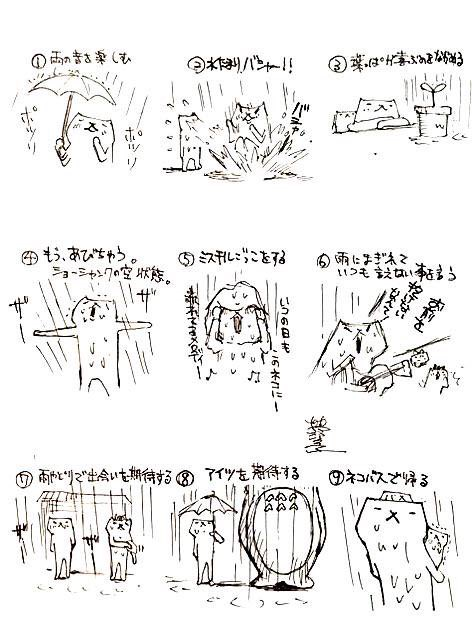 ① 雨の音を楽しむ
ポツリ
ポツリ
② 水たまりバシャー!!
③ 葉っぱが喜ぶのをながめる
④ もう、あびちゃう。
ショーシャンクの空状態。
ザー
ザー
⑤ ミスチルごっこをする
いつの日も
このネコに
⑥ 雨にまぎれて
いつも言えない事を言う
⑦ 雨やどりで出会いを期待する
⑧ アイツを期待する
⑨ ネコバスで帰る